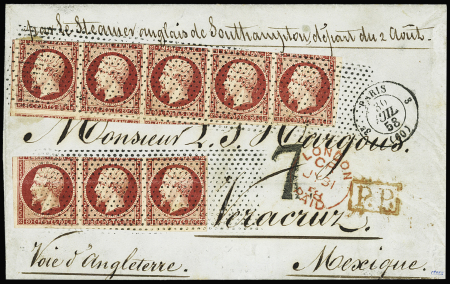 par le Steamer anglais de Southampton, départ du 2 Août.
PARIS
30
JUIL.
58
(60)
Monsieur L. S. Hargous,
7
LONDON
JY 31
58
PAID
P.P.
Veracruz,
Voie d'Angleterre.
Mexique.